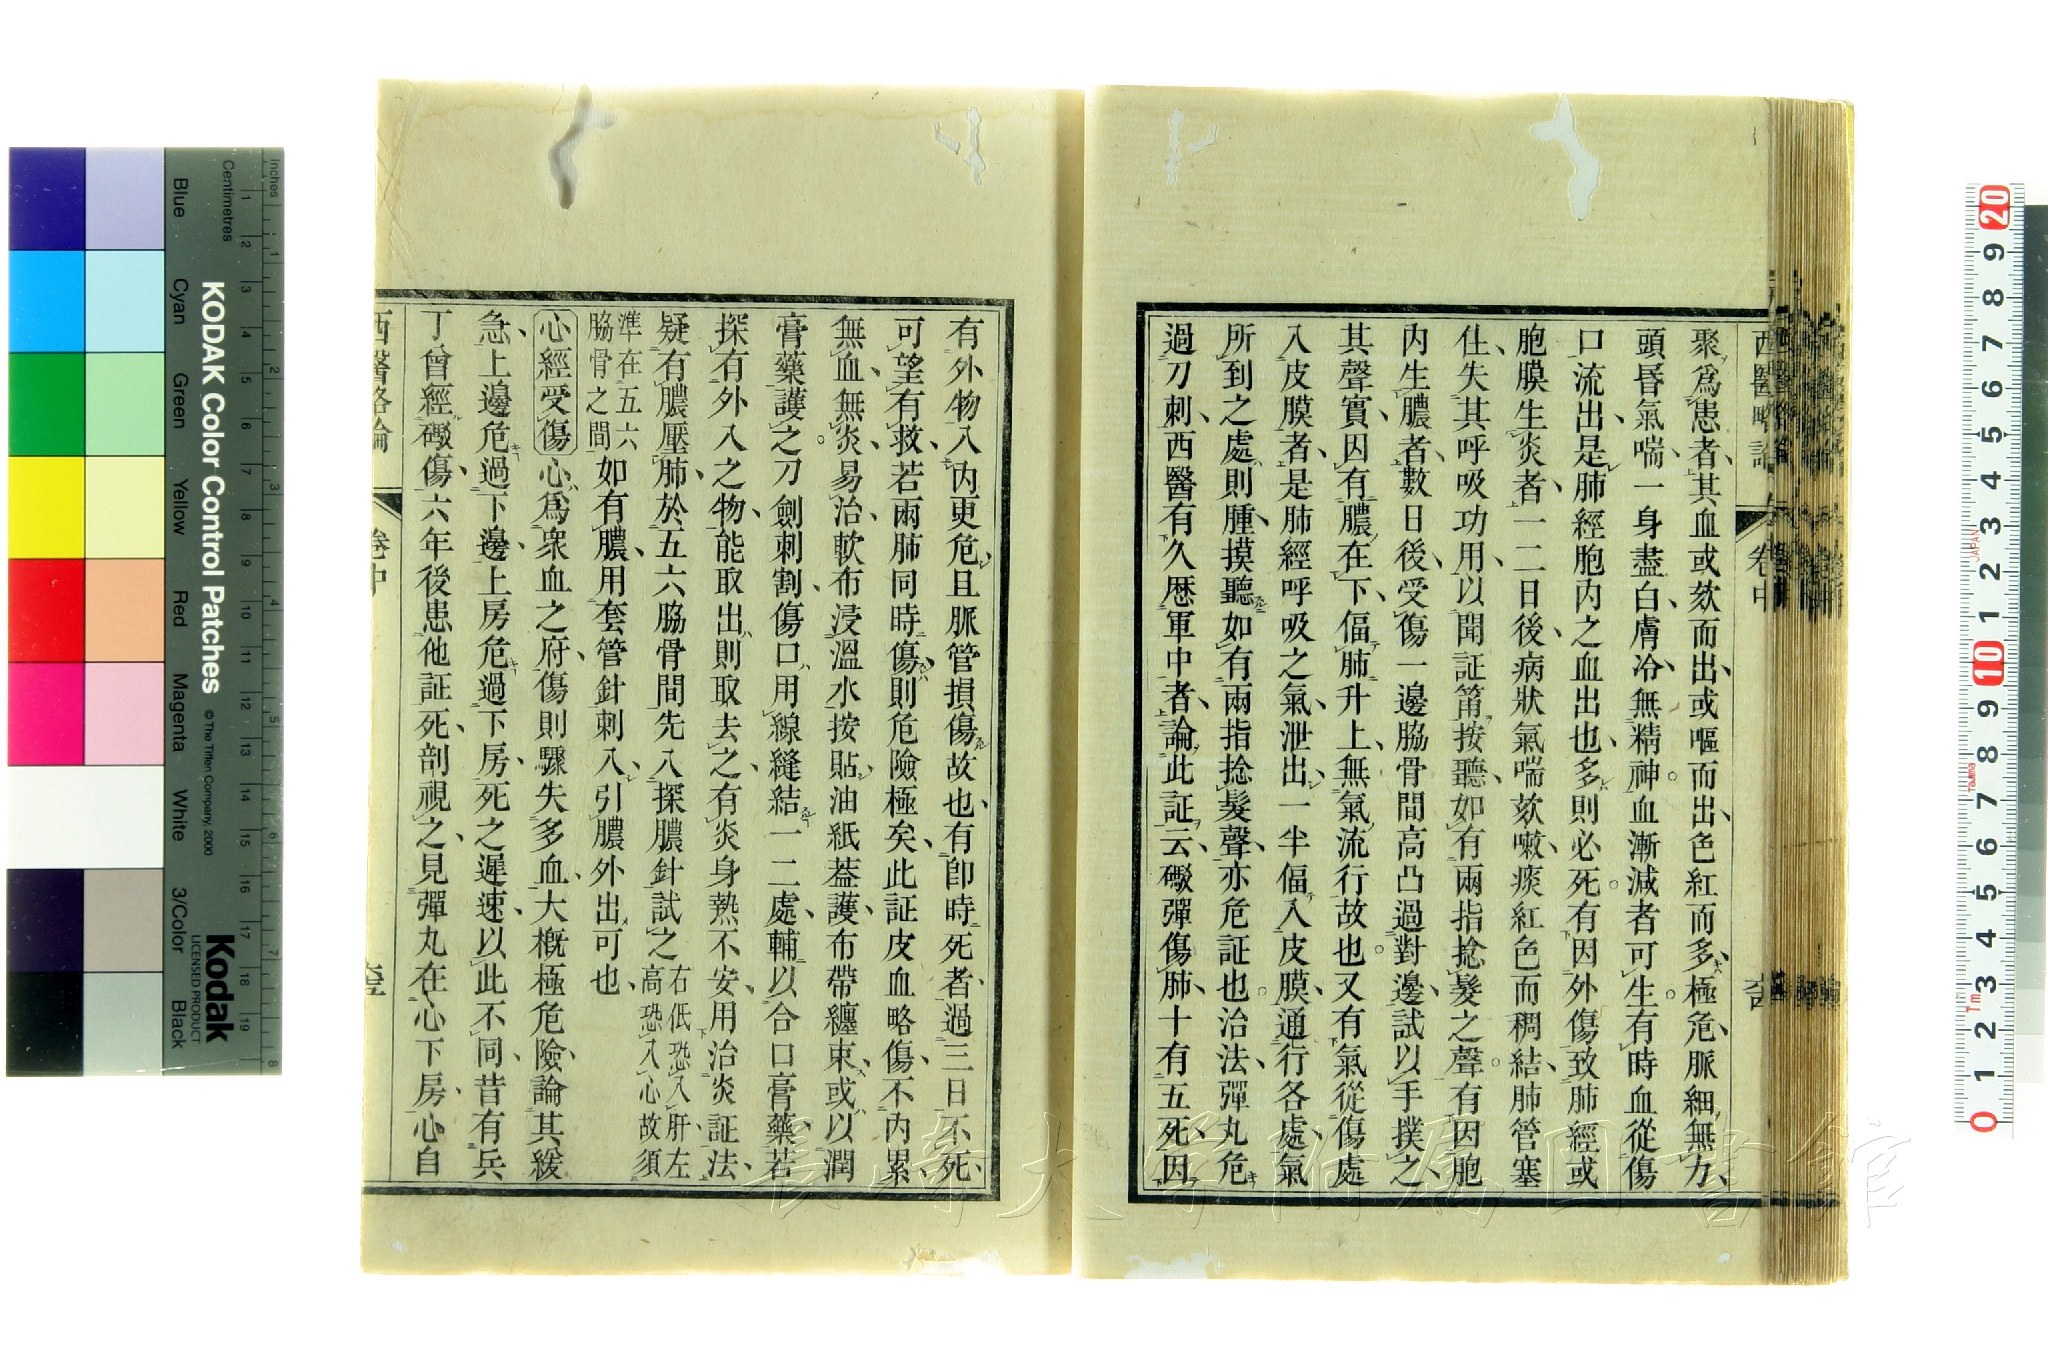 西醫略論 卷中
聚爲患者其血或欬而出或嘔而出色紅而多極危脈細無力
頭昬氣喘一身盡白膚冷無精神血漸減者可生有時血從傷
口流出是肺經胞内之血出也多則必死有因外傷致肺經或
胞膜生炎者一二日後病狀氣喘欬嗽痰紅色而稠結肺管塞
仕失其呼吸功用以聞証筩按聽如有兩指捻髮之聲有因胞
内生膿者數日後受傷一邊脇骨間高凸過對邊試以手撲之
其聲實因有膿在下偪肺升上無氣流行故也又有氣從傷處
入皮膜者是肺經呼吸之氣泄出一半偪入皮膜通行各處氣
所到之處則腫摸聽如有兩指捻髮聲亦危証也治法彈丸危
過刀刺西醫有久歷軍中者論此証云礮彈傷肺十有五死因
有外物入內更危且脈管損傷故也有卽時死者過三日不死
可望有救若兩肺同時傷則危險極矣此証皮血略傷不内累
無血無炎易治軟布浸溫水按貼油紙葢護布帶纏束或以潤
膏藥護之刀劍刺割傷口用線縫結一二處輔以合口膏藥若
探有外入之物能取出則取去之有炎身熱不安用治炎証法
疑有膿壓肺於五六脇骨間先入探膿針試之右低恐入肝左
高恐入心故須
準在五六
脇骨之間如有膿用套管針刺入引膿外出可也
心經受傷心爲衆血之府傷則驟失多血大概極危險論其緩
急上邊危過下邊上房危過下房死之遲速以此不同昔有兵
丁曾經礮傷六年後患他証死剖視之見彈丸在心下房心自
西醫略論 卷中
KODAK Color Control Patches
© The Tiffen Company, 2000
Kodak
LICENSED PRODUCT
Blue Cyan Green Yellow Red Magenta White 3/Color Black
Inches
Centimetres
1 2 3 4 5 6 7 8 9 10 11 12 13 14 15 16 17 18 19
1 2 3 4 5 6 7 8
20 9 8 7 6 5 4 3 2 1 10 9 8 7 6 5 4 3 2 1 0
JAPAN
Tajima
長崎大学附属図書館